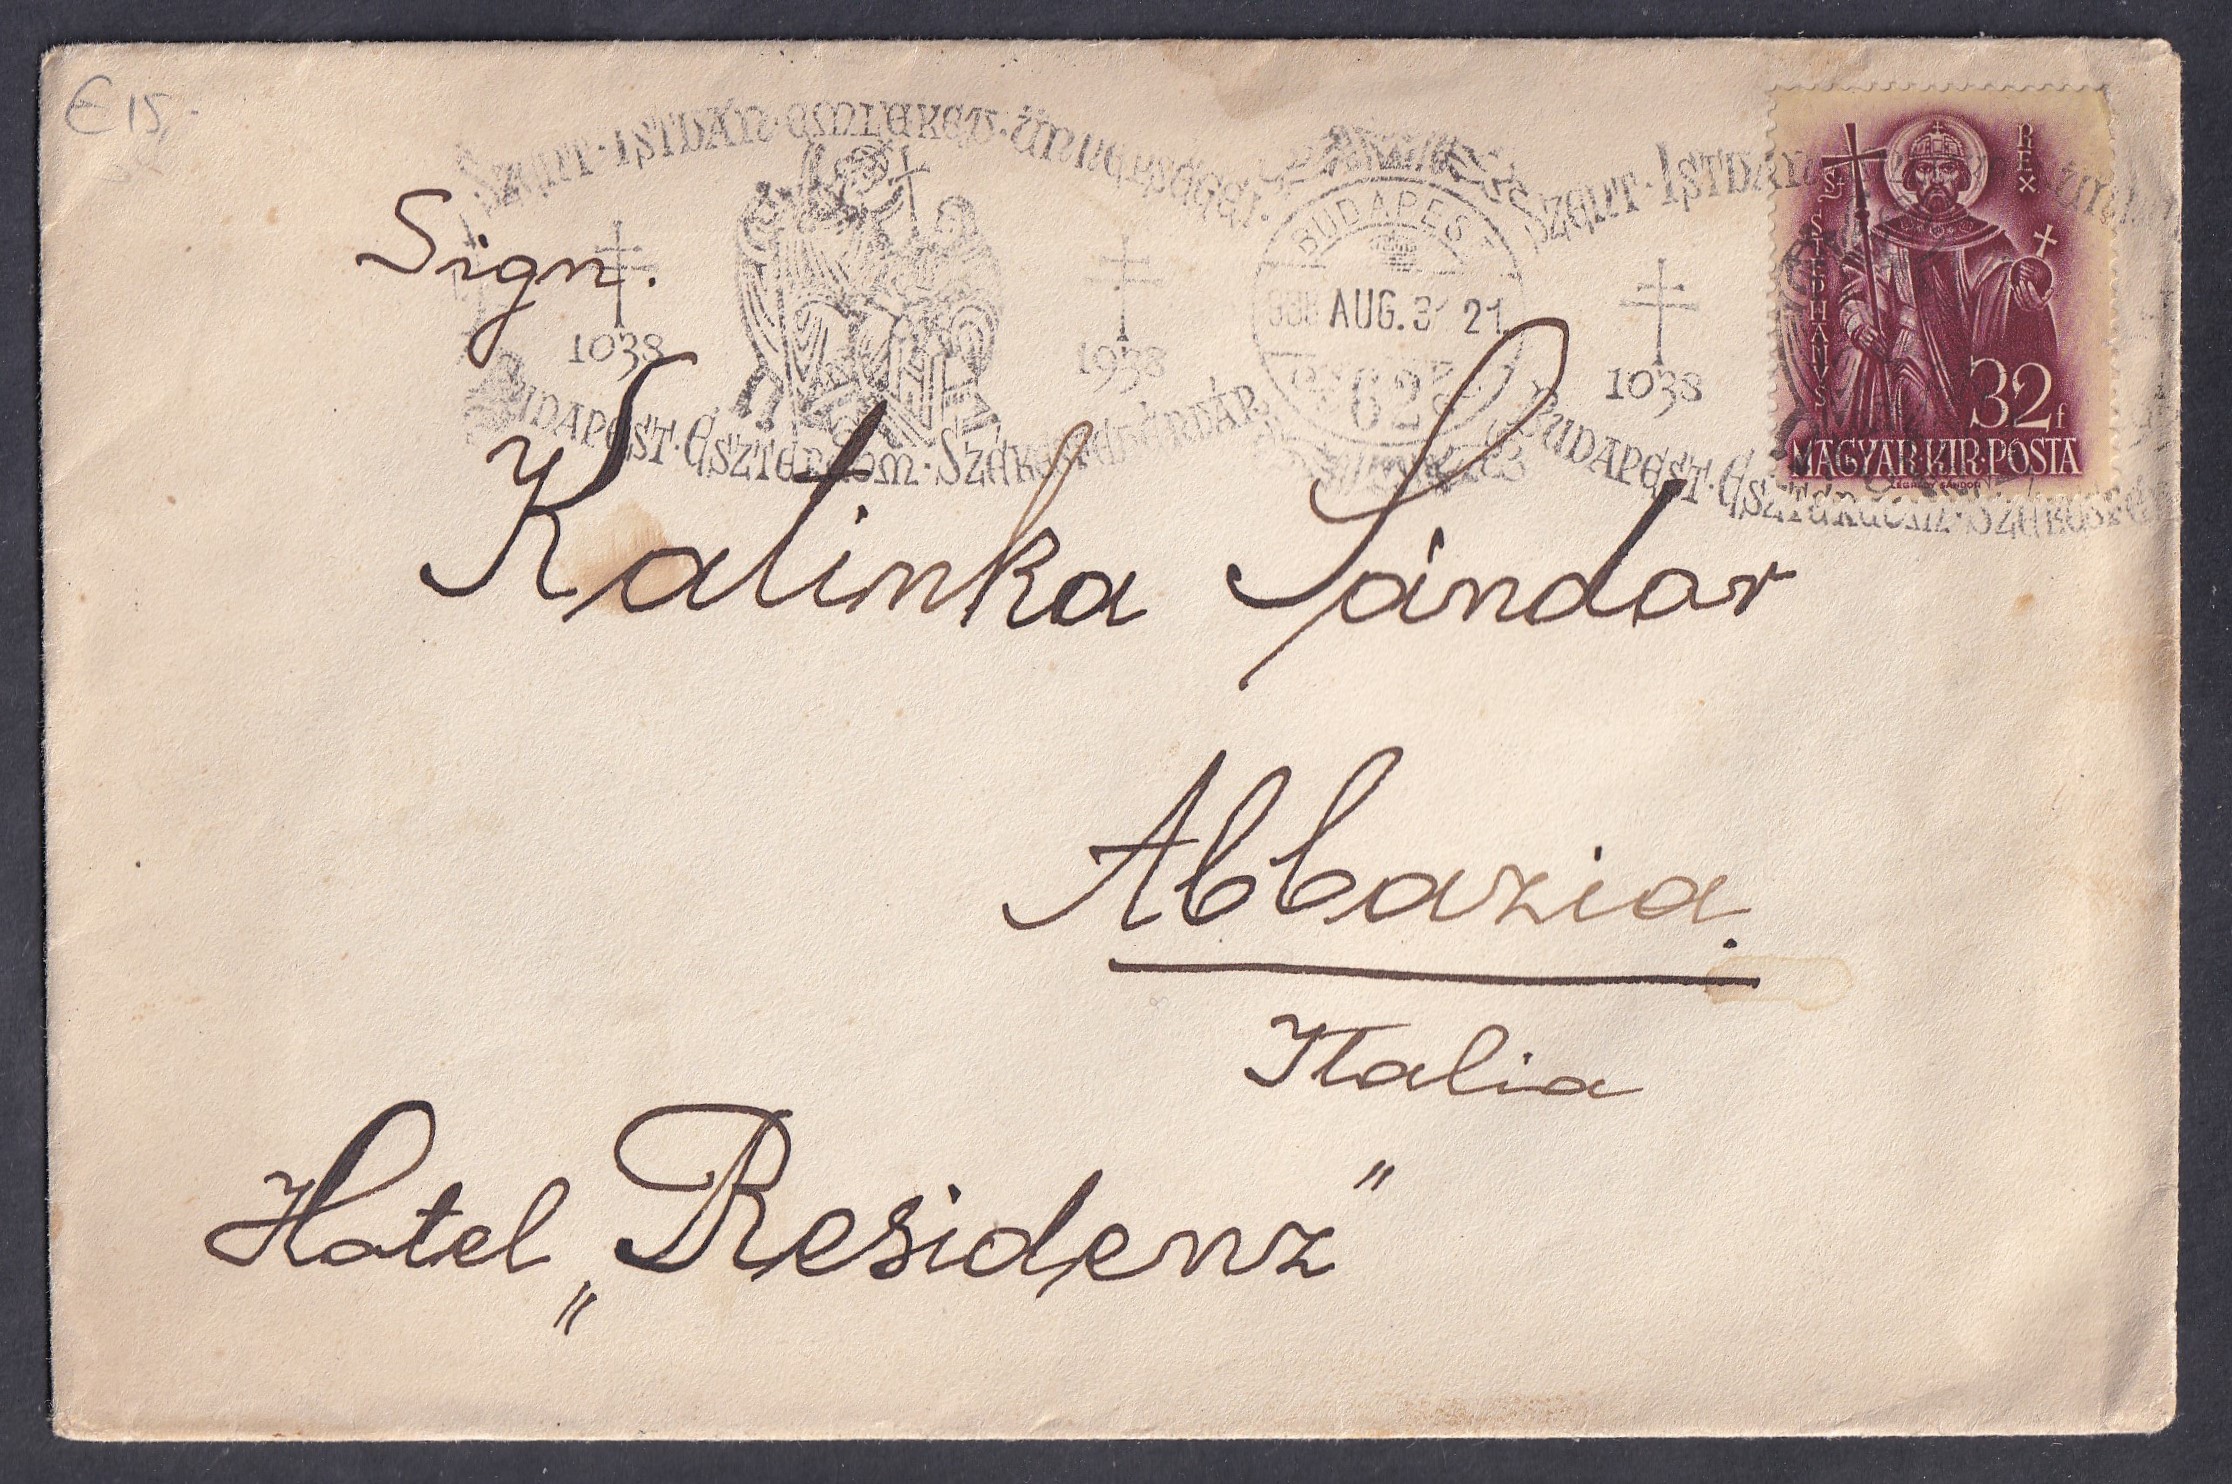 E 15,-
SZENT · ISTVÁN · EMLÉKÉV · ÜNNEPSÉGEI ·
1038
1938
BUDAPEST · ESZTERGOM · SZÉKESFEHÉRVÁR
BUDAPEST
938 AUG. 31 21
62
SZENT · ISTVÁN
1038
BUDAPEST · ESZTERGOM · SZÉKESFE
S. STEPHANVS
REX
32f
MAGYAR · KIR · POSTA
LÉGRÁDY SÁNDOR
Sign.
Kalinka Sándor
Abbazia.
Italia
Hotel „Residenz"